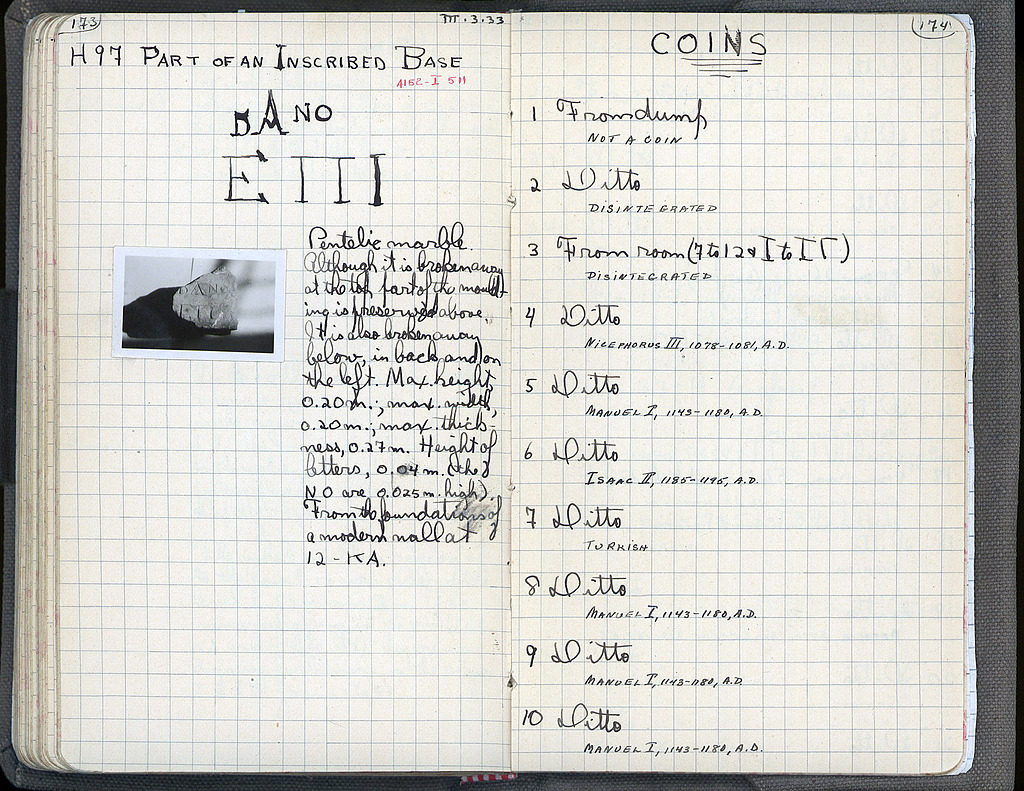 173
III · 3 · 33
H 97 PART OF AN INSCRIBED BASE
4152 - I 511
ΑΝΟ
ΕΠΙ
Pentelic marble.
Although it is broken away
at the top, part of the mould-
ing is preserved above.
It is also broken away
below, in back, and on
the left. Max. height,
0.20 m.; max. width,
0.20 m.; max. thick-
ness, 0.27 m. Height of
letters, 0.04 m. (the
NO are 0.025 m. high).
From the foundations of
a modern wall at
12 - KA.
174
COINS
1 From dump
NOT A COIN
2 Ditto
DISINTEGRATED
3 From room (7 to 12 & I to IΓ)
DISINTEGRATED
4 Ditto
NICEPHORUS III, 1078-1081, A.D.
5 Ditto
MANUEL I, 1143-1180, A.D.
6 Ditto
ISAAC II, 1185-1195, A.D.
7 Ditto
TURKISH
8 Ditto
MANUEL I, 1143-1180, A.D.
9 Ditto
MANUEL I, 1143-1180, A.D.
10 Ditto
MANUEL I, 1143-1180, A.D.